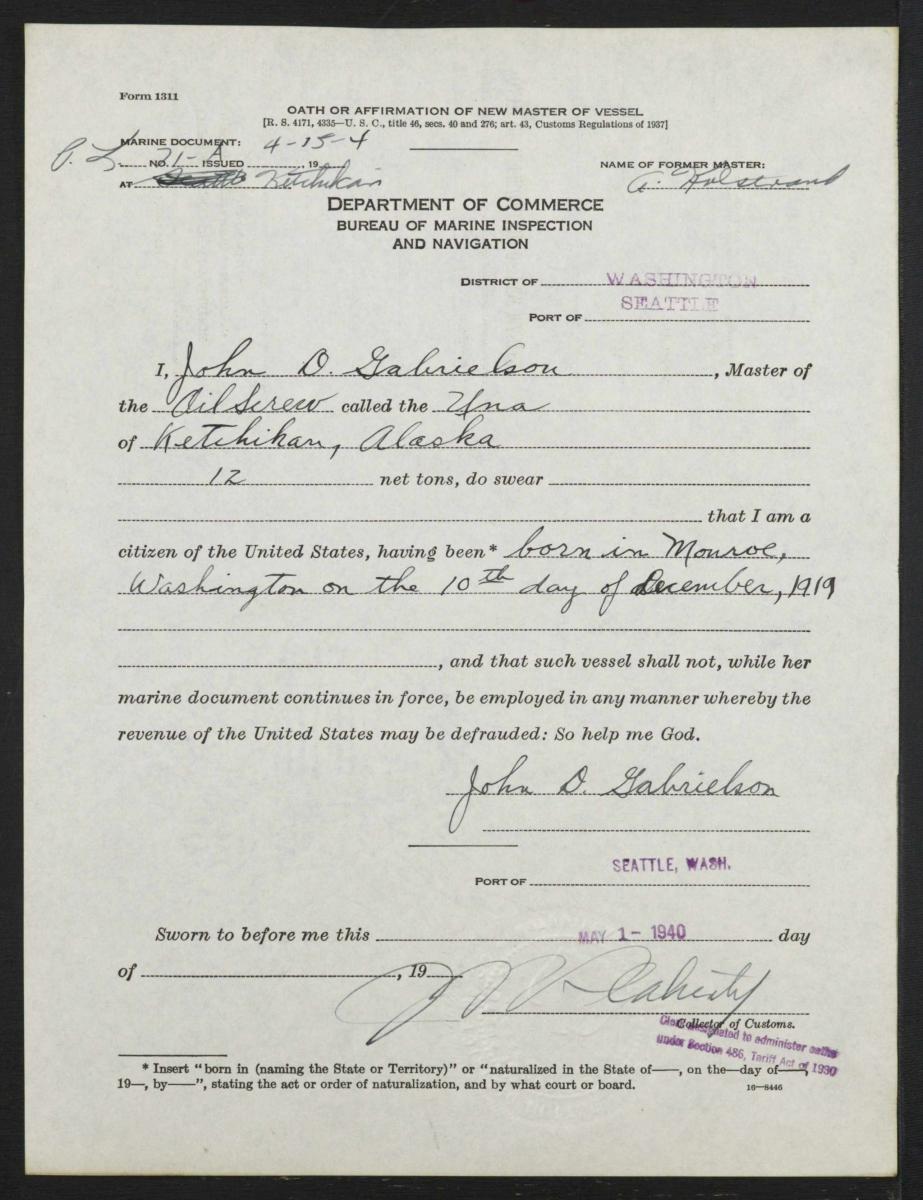 Form 1311
OATH OR AFFIRMATION OF NEW MASTER OF VESSEL
[R. S. 4171, 4335—U. S. C., title 46, secs. 40 and 276; art. 43, Customs Regulations of 1937]
MARINE DOCUMENT: 4-15-4
P. L. NO. 21-A ISSUED , 19
NAME OF FORMER MASTER:
AT Ketchikan
A. Holstrand
DEPARTMENT OF COMMERCE
BUREAU OF MARINE INSPECTION
AND NAVIGATION
DISTRICT OF WASHINGTON
PORT OF SEATTLE
I, John D. Gabrielson, Master of
the Oil Screw called the Una
of Ketchikan, Alaska
12 net tons, do swear
that I am a
citizen of the United States, having been* born in Monroe,
Washington on the 10th day of December, 1919
, and that such vessel shall not, while her
marine document continues in force, be employed in any manner whereby the
revenue of the United States may be defrauded: So help me God.
John D. Gabrielson
SEATTLE, WASH.
PORT OF
Sworn to before me this MAY 1- 1940 day
of , 19
Collector of Customs.
Clerk designated to administer oaths
under Section 486, Tariff Act of 1930
* Insert "born in (naming the State or Territory)" or "naturalized in the State of——, on the—day of——,
19—, by——", stating the act or order of naturalization, and by what court or board.
16—8446